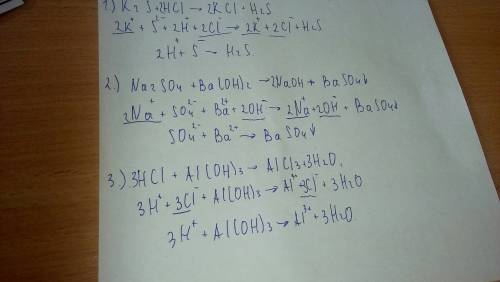 1.) K2S+2HCl → 2KCl + H2S
2K⁺ + S²⁻ + 2H⁺ + 2Cl⁻ → 2K⁺ + 2Cl⁻ + H2S
2H⁺ + S²⁻ → H2S.
2.) Na2SO4 + Ba(OH)2 → 2NaOH + BaSO4↓
2Na⁺ + SO4²⁻ + Ba²⁺ + 2OH⁻ → 2Na⁺ + 2OH⁻ + BaSO4↓
SO4²⁻ + Ba²⁺ → BaSO4↓
3.) 3HCl + Al(OH)3 → AlCl3 + 3H2O,
3H⁺ + 3Cl⁻ + Al(OH)3 → Al³⁺ + 3Cl⁻ + 3H2O
3H⁺ + Al(OH)3 → Al³⁺ + 3H2O